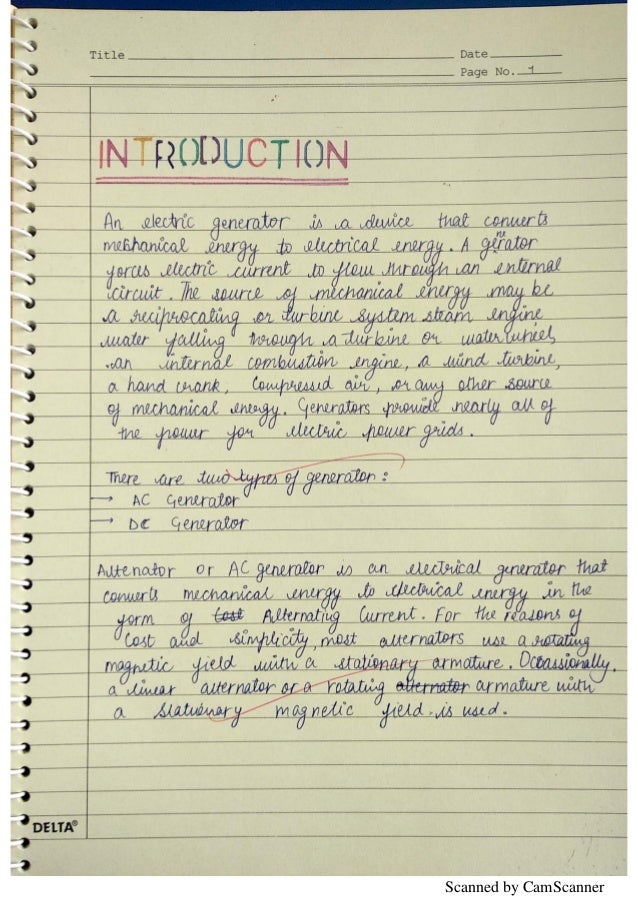 Title
Date
Page No. 1
INTRODUCTION
An electric generator is a device that converts
mechanical energy to electrical energy. A gerator
ne
forces electric current to flow through an enternal
circuit. The source of mechanical energy may be
a reciprocating or turbine system steam engine
water falling through a turbine or waterwheel,
an internal combustion engine, a wind turbine,
a hand crank, Compressed air, or any other source
of mechanical energy. Generators provide nearly all of
the power for electric power grids.
There are two types of generator:
→ AC Generator
→ DC Generator
Altenator or AC generator is an electrical generator that
converts mechanical energy to electrical energy in the
form of Cost Alternating Current. For the reasons of
Cost and simplicity, most alternators use a rotating
magnetic field with a stationary armature. Occassionally,
a linear alternator or a rotating alternator armature with
a stationary magnetic field is used.
DELTA®
Scanned by CamScanner